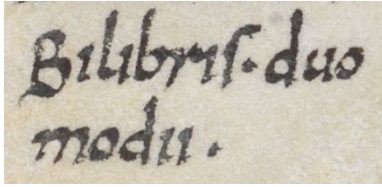 Bilibris. duo
modii.